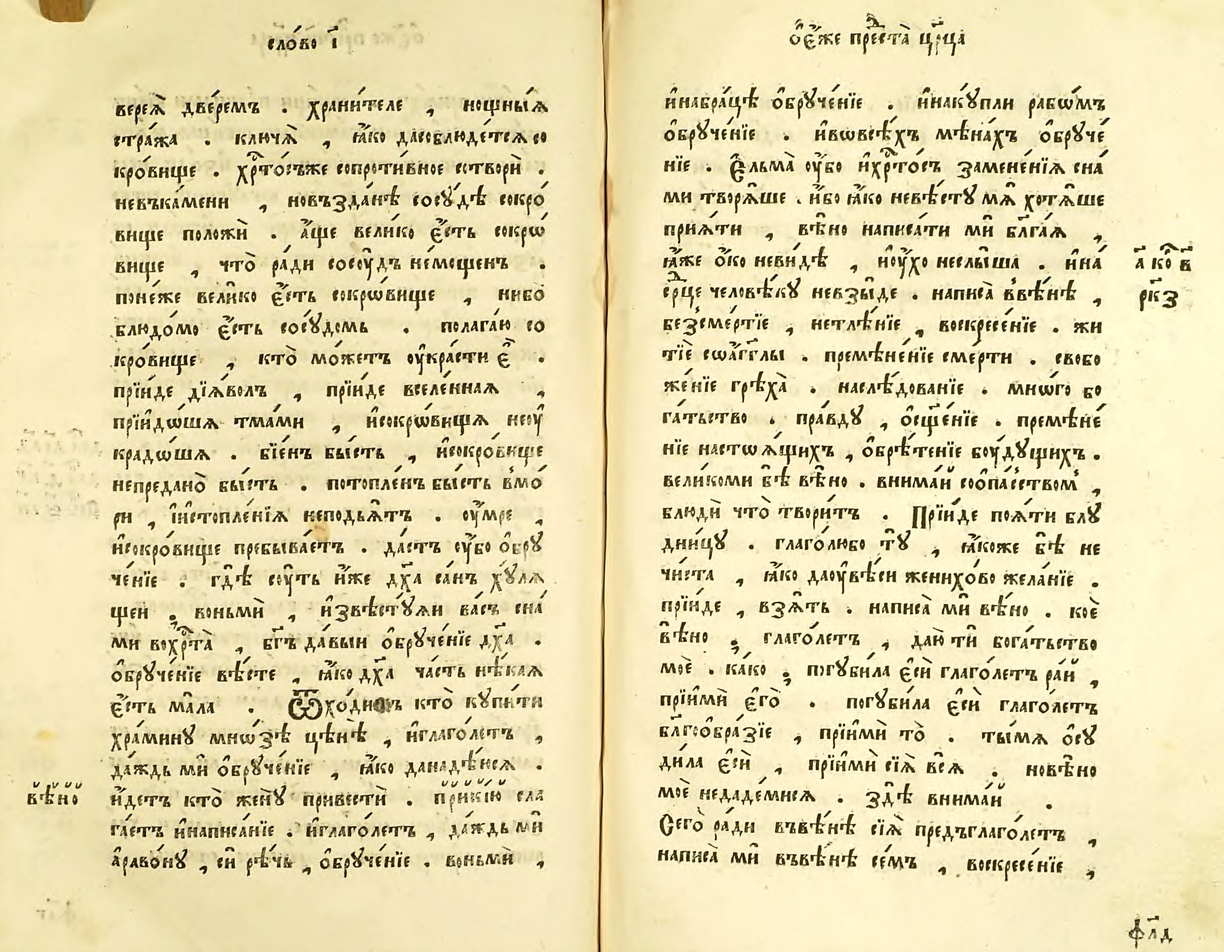 сло́во і҃
верея̀ две́ремъ . храни́теле , но́щныѧ
стра́жа . ключѧ̀ , ꙗ҆́ко дасоблюде́тсѧ со
кро́вище . хрⷭ҇то́съже сопроти́вное сотворѝ .
невъка́мени , новъзда́нѣ сосꙋ́дѣ сокро́
вище положѝ . а҆́ще велико є҆́сть сокрѡ́
вище , что̀ ра́ди сосоу́дъ не́мощенъ .
поне́же вели́ко є҆́сть сокрѡ́вище , нибо̀
блюдо́мо є҆́сть сосꙋ́домь . полага́ю со
кро́вище , кто̀ мо́жетъ оу҆кра́сти є҆̀ .
прїи́де дїѧ́волъ , прїи́де вселе́ннаѧ ,
прїидѡ́шѧ тма́ми , и҆сокрѡ́вищѧ неоу҆
кра́дѡшѧ . бїе́нъ бы́сть , и҆сокро́вище
непредано̀ бы́сть . потопле́нъ бы́сть в̾мо́
ри , і҆истопле́нїѧ неподъѧ́тъ . оу҆́мре ,
и҆сокро́вище пребыва́етъ . да́стъ оу҆́бо ѻ҆брꙋ
че́нїе . гдѣ̀ соу́ть и҆́же дх҃а са́нъ хꙋ́лѧ
щеи , воньмѝ , и҆звѣстꙋ́ѧи ва́съ сна́
ми вохрⷭ҇та̀ , бг҃ъ да́выи ѻ҆брꙋче́нїе дх҃а .
ѻ҆брꙋче́нїе вѣ́сте , ꙗ҆́ко дх҃а ча́сть нѣ́каѧ
є҆́сть ма́ла . Ѿходи́тъ кто̀ кꙋпи́ти
хра́минꙋ мно́ѕѣ цѣ́нѣ , и҆глаго́летъ ,
да́ждь мѝ ѻ҆брꙋче́нїе , ꙗ҆́ко данадѣ́юсѧ .
и҆́детъ кто̀ женꙋ̀ привестѝ . при́кїю сла
га́етъ и҆написа́нїе . и҆глаго́летъ , да́ждь мѝ
а҆раво́нꙋ , сѝ рѣ́чь , ѻ҆брꙋче́нїе . воньмѝ ,
вѣ́но
ѻ҆е҆́же предста̀ цр҃ца
и҆набра́цѣ ѻ҆брꙋче́нїе . и҆накꙋ́пли рабѡ́мъ
ѻ҆брꙋче́нїе . и҆вовсѣ́хъ мѣ́нахъ ѻ҆брꙋче́
нїе . є҆льма̀ оу҆́бо и҆хрⷭ҇то́съ замене́нїѧ сна́
ми творѧ́ше . и҆́бо ꙗ҆́ко невѣ́стꙋ мѧ̀ хотѧ́ше
прия́ти , вѣ́но написа́ти мѝ бл҃га́ѧ ,
ꙗ҆́же о҆́ко невидѣ̀ , и҆оу҆́хо неслы́ша . и҆на́
срⷣце человѣ́кꙋ невзы́де . написа̀ в̾вѣ́нѣ ,
безсме́ртїе , нетлѣ́нїе , воскресе́нїе . жи
тїѐ соа҆́гг҃лы . премѣне́нїе сме́рти . свобо
же́нїе грѣха̀ . наслѣ́дованїе . мно́го бо
га́тьство . пра́вдꙋ , ѻ҆сщ҃е́нїе . премѣне́
нїе настоѧ́щихъ , ѻ҆брѣ́тенїе боу́дꙋщихъ .
великоми бѣ̀ вѣ́но . внима́й соопа́сствомъ ,
блюдѝ что̀ твори́тъ . Прїи́де поѧ́ти блꙋ
дни́цꙋ . глаго́любо тꙋ̀ , ꙗ҆́коже бѣ̀ не
чи́ста , ꙗ҆́ко даоу҆вѣ́си женихо́во жела́нїе .
прїи́де , взѧ́тъ . написа̀ мѝ вѣ́но . коѐ
вѣ́но , глаго́летъ , даю̀ тѝ бога́тьство
моѐ . ка́ко , погꙋби́ла є҆сѝ глаго́летъ ра́й ,
прїимѝ є҆го̀ . погꙋби́ла є҆сѝ глаго́летъ
бл҃гоѻбра́зїе , прїимѝ то̀ . ты́мѧ ѻ҆сꙋ
ди́ла є҆сѝ , прїимѝ сїѧ̀ всѧ̀ . новѣ́но
моѐ недадемисѧ . здѣ̀ внима́й .
Сего̀ ра́ди въвѣ́нѣ сїѧ̀ предъглаго́летъ ,
написа̀ мѝ въвѣ́нѣ се́мъ , воскресе́нїе ,
а҃ ко в҃
рк҃з
фл҃д